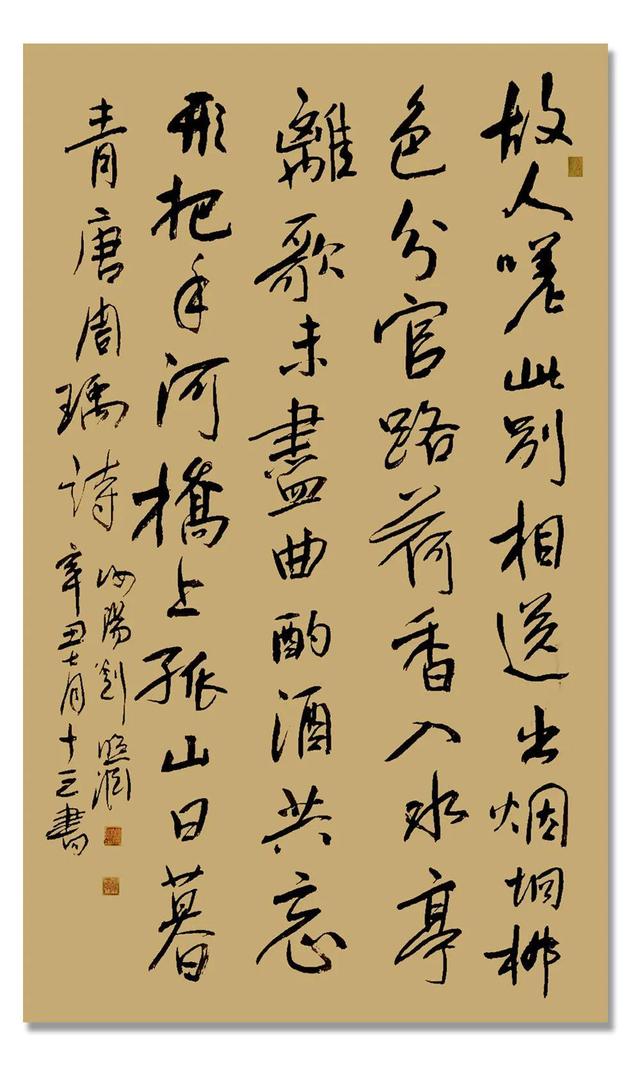 故人嗟此别相送出烟坰柳
色分官路荷香入水亭
離歌未盡曲酌酒共忘
形把手河橋上孤山日暮
青唐周瑀詩
汝陽劉
辛丑七月十三書